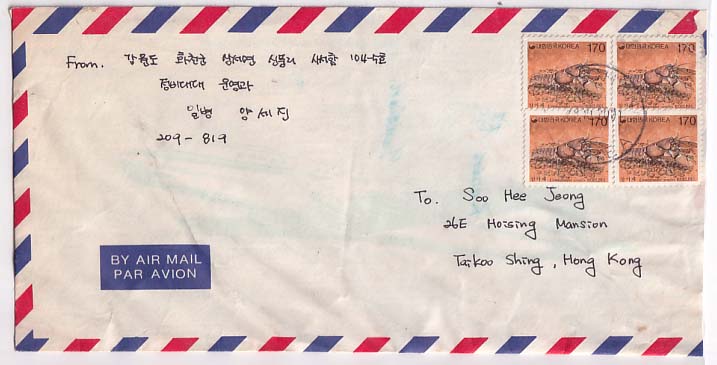 From. 강원도 화천군 상서면 신풍리 사서함 104-5호
정비대대 운영과
일병 양세진
209-819
대한민국 KOREA 170
대한민국 KOREA 170
대한민국 KOREA 170
대한민국 KOREA 170
To. Soo Hee Jeong
26E Hoising Mansion
Taikoo Shing, Hong Kong
BY AIR MAIL
PAR AVION